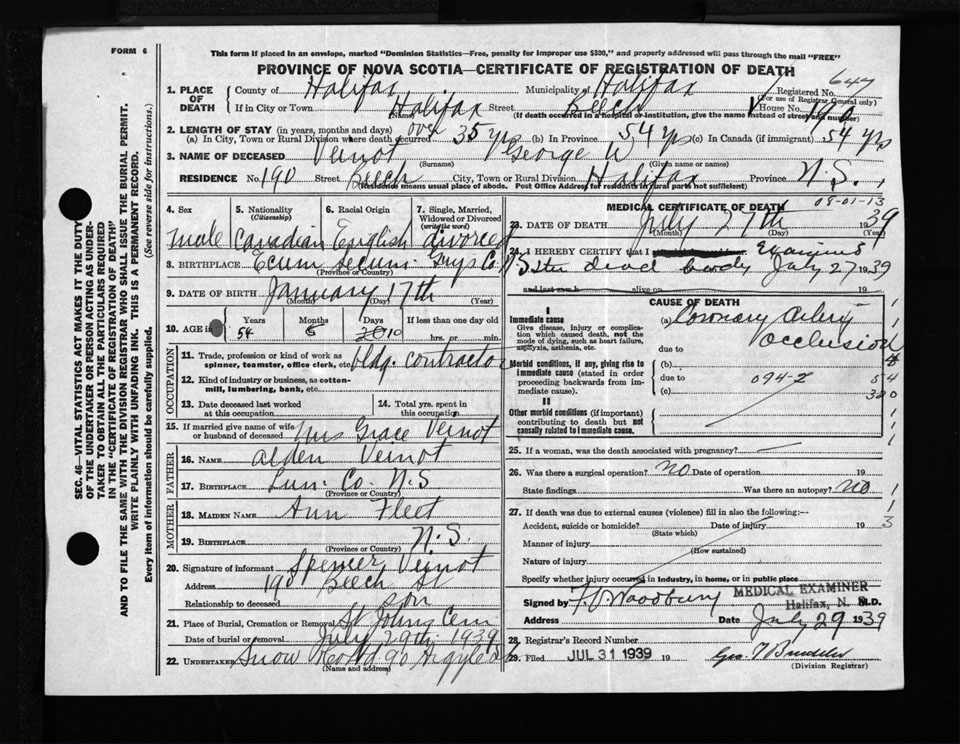 FORM 6
This form if placed in an envelope, marked "Dominion Statistics—Free, penalty for improper use $300," and properly addressed will pass through the mail "FREE"
PROVINCE OF NOVA SCOTIA—CERTIFICATE OF REGISTRATION OF DEATH
SEC. 46—VITAL STATISTICS ACT MAKES IT THE DUTY
OF THE UNDERTAKER OR PERSON ACTING AS UNDER-
TAKER TO OBTAIN ALL THE PARTICULARS REQUIRED
IN THE "CERTIFICATE OF REGISTRATION OF DEATH"
AND TO FILE THE SAME WITH THE DIVISION REGISTRAR WHO SHALL ISSUE THE BURIAL PERMIT.
WRITE PLAINLY WITH UNFADING INK. THIS IS A PERMANENT RECORD.
Every item of information should be carefully supplied. (See reverse side for instructions.)
1. PLACE OF DEATH
County of Halifax Municipality of Halifax Registered No. 647
(For use of Registrar General only)
If in City or Town Halifax Street Beech House No. 190
(Name)
(If death occurred in a hospital or institution, give the name instead of street and number)
2. LENGTH OF STAY (in years, months and days)
(a) In City, Town or Rural Division where death occurred over 35 yrs (b) In Province 54 yrs (c) In Canada (if immigrant) 54 yrs
3. NAME OF DECEASED Veinot George W
(Surname) (Given name or names)
RESIDENCE No. 190 Street Beech City, Town or Rural Division Halifax Province N.S.
(Residence means usual place of abode. Post Office Address for residents in rural parts not sufficient)
4. Sex 5. Nationality (Citizenship) 6. Racial Origin 7. Single, Married, Widowed or Divorced (write the word)
male Canadian English divorced
8. BIRTHPLACE Ecum Secum Guys Co N S
(Province or Country)
9. DATE OF BIRTH January 17th
(Month) (Day) (Year)
10. AGE in Years Months Days If less than one day
54 6 10 hrs. or min.
OCCUPATION
11. Trade, profession or kind of work as spinner, teamster, office clerk, etc. bldg. contractor
12. Kind of industry or business, as cotton-mill, lumbering, bank, etc.
13. Date deceased last worked at this occupation
14. Total yrs. spent in this occupation
15. If married give name of wife or husband of deceased Mrs Grace Veinot
FATHER
16. NAME Alden Veinot
17. BIRTHPLACE Lun. Co. N.S
(Province or Country)
MOTHER
18. MAIDEN NAME Ann Fleet
19. BIRTHPLACE N.S.
(Province or Country)
20. Signature of informant Spencer Veinot
Address 190 Beech St
Relationship to deceased son
21. Place of Burial, Cremation or Removal St Johns Cem
Date of burial or removal July 29th 1939
22. UNDERTAKER Snow & Co Ltd 90 Argyle St
(Name and address)
MEDICAL CERTIFICATE OF DEATH
08-01-13
23. DATE OF DEATH July 27th 1939
(Month) (Day) (Year)
24. I HEREBY CERTIFY that I Examined
the dead body July 27 1939
and last saw h alive on 19
CAUSE OF DEATH
I
Immediate cause
Give disease, injury or complication which caused death, not the mode of dying, such as heart failure, asphyxia, asthenia, etc.
(a) Coronary Artery Occlusion
due to
Morbid conditions, if any, giving rise to immediate cause (stated in order proceeding backwards from immediate cause).
(b)
due to 094-2
(c)
54
320
II
Other morbid conditions (if important) contributing to death but not causally related to immediate cause.
25. If a woman, was the death associated with pregnancy?
26. Was there a surgical operation? NO Date of operation 19
State findings Was there an autopsy? NO
27. If death was due to external causes (violence) fill in also the following:—
Accident, suicide or homicide? Date of injury 19 3
(State which)
Manner of injury
(How sustained)
Nature of injury
Specify whether injury occurred in industry, in home, or in public place
Signed by F. O Woodbury MEDICAL EXAMINER M.D.
Halifax, N. S.
Address Date July 29 1939
28. Registrar's Record Number
29. Filed JUL 31 1939 19
(Division Registrar)